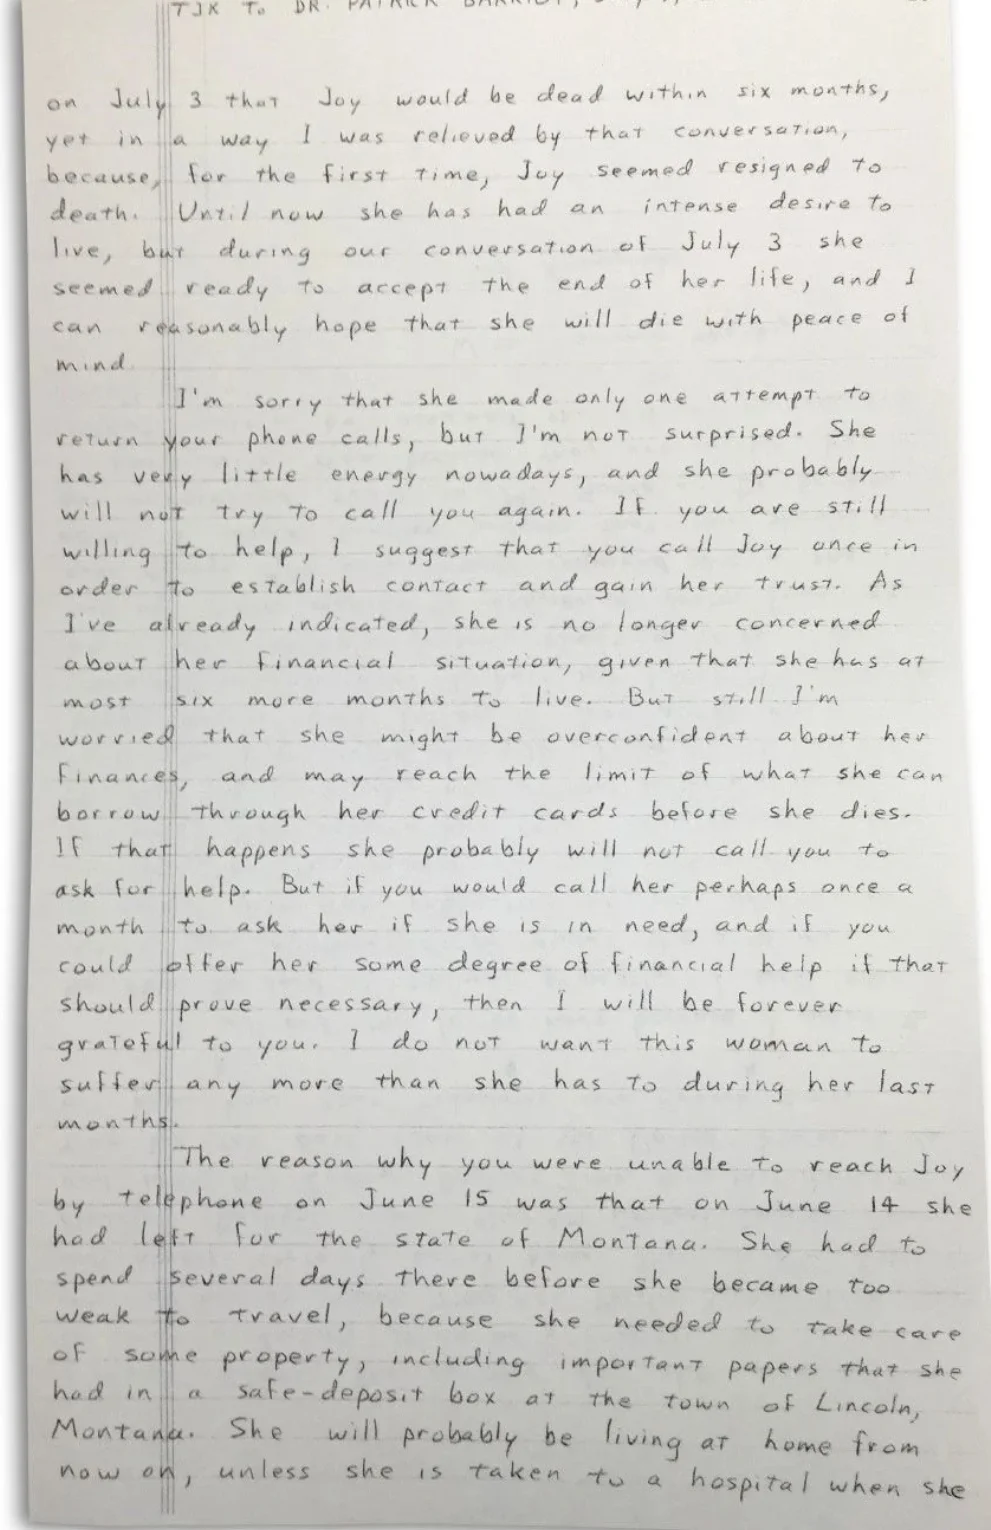 TJK To DR. PATRICK
on July 3 that Joy would be dead within six months,
yet in a way I was relieved by that conversation,
because, for the first time, Joy seemed resigned to
death. Until now she has had an intense desire to
live, but during our conversation of July 3 she
seemed ready to accept the end of her life, and I
can reasonably hope that she will die with peace of
mind.
I'm sorry that she made only one attempt to
return your phone calls, but I'm not surprised. She
has very little energy nowadays, and she probably
will not try to call you again. If you are still
willing to help, I suggest that you call Joy once in
order to establish contact and gain her trust. As
I've already indicated, she is no longer concerned
about her financial situation, given that she has at
most six more months to live. But still I'm
worried that she might be overconfident about her
finances, and may reach the limit of what she can
borrow through her credit cards before she dies.
If that happens she probably will not call you to
ask for help. But if you would call her perhaps once a
month to ask her if she is in need, and if you
could offer her some degree of financial help if that
should prove necessary, then I will be forever
grateful to you. I do not want this woman to
suffer any more than she has to during her last
months.
The reason why you were unable to reach Joy
by telephone on June 15 was that on June 14 she
had left for the state of Montana. She had to
spend several days there before she became too
weak to travel, because she needed to take care
of some property, including important papers that she
had in a safe-deposit box at the town of Lincoln,
Montana. She will probably be living at home from
now on, unless she is taken to a hospital when she